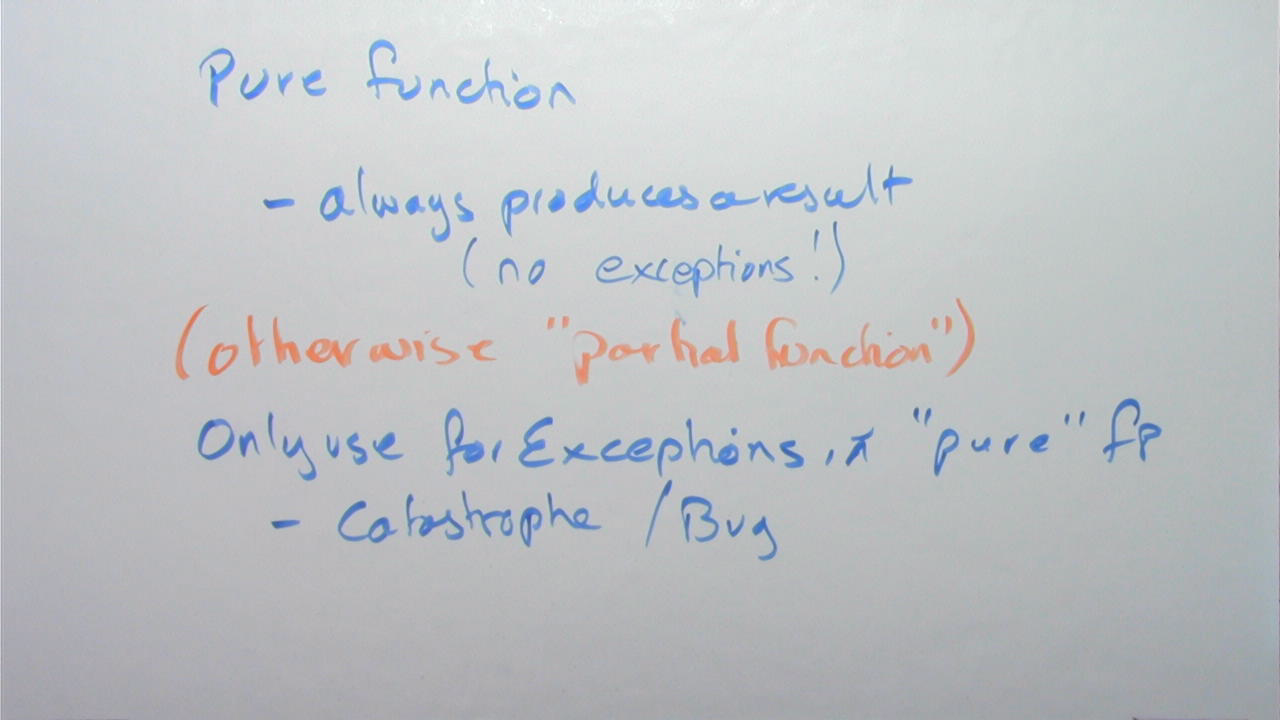 Pure function
- always produces a result
(no exceptions!)
(otherwise "partial function")
Only use for Exceptions in "pure" fp
- Catastrophe / Bug